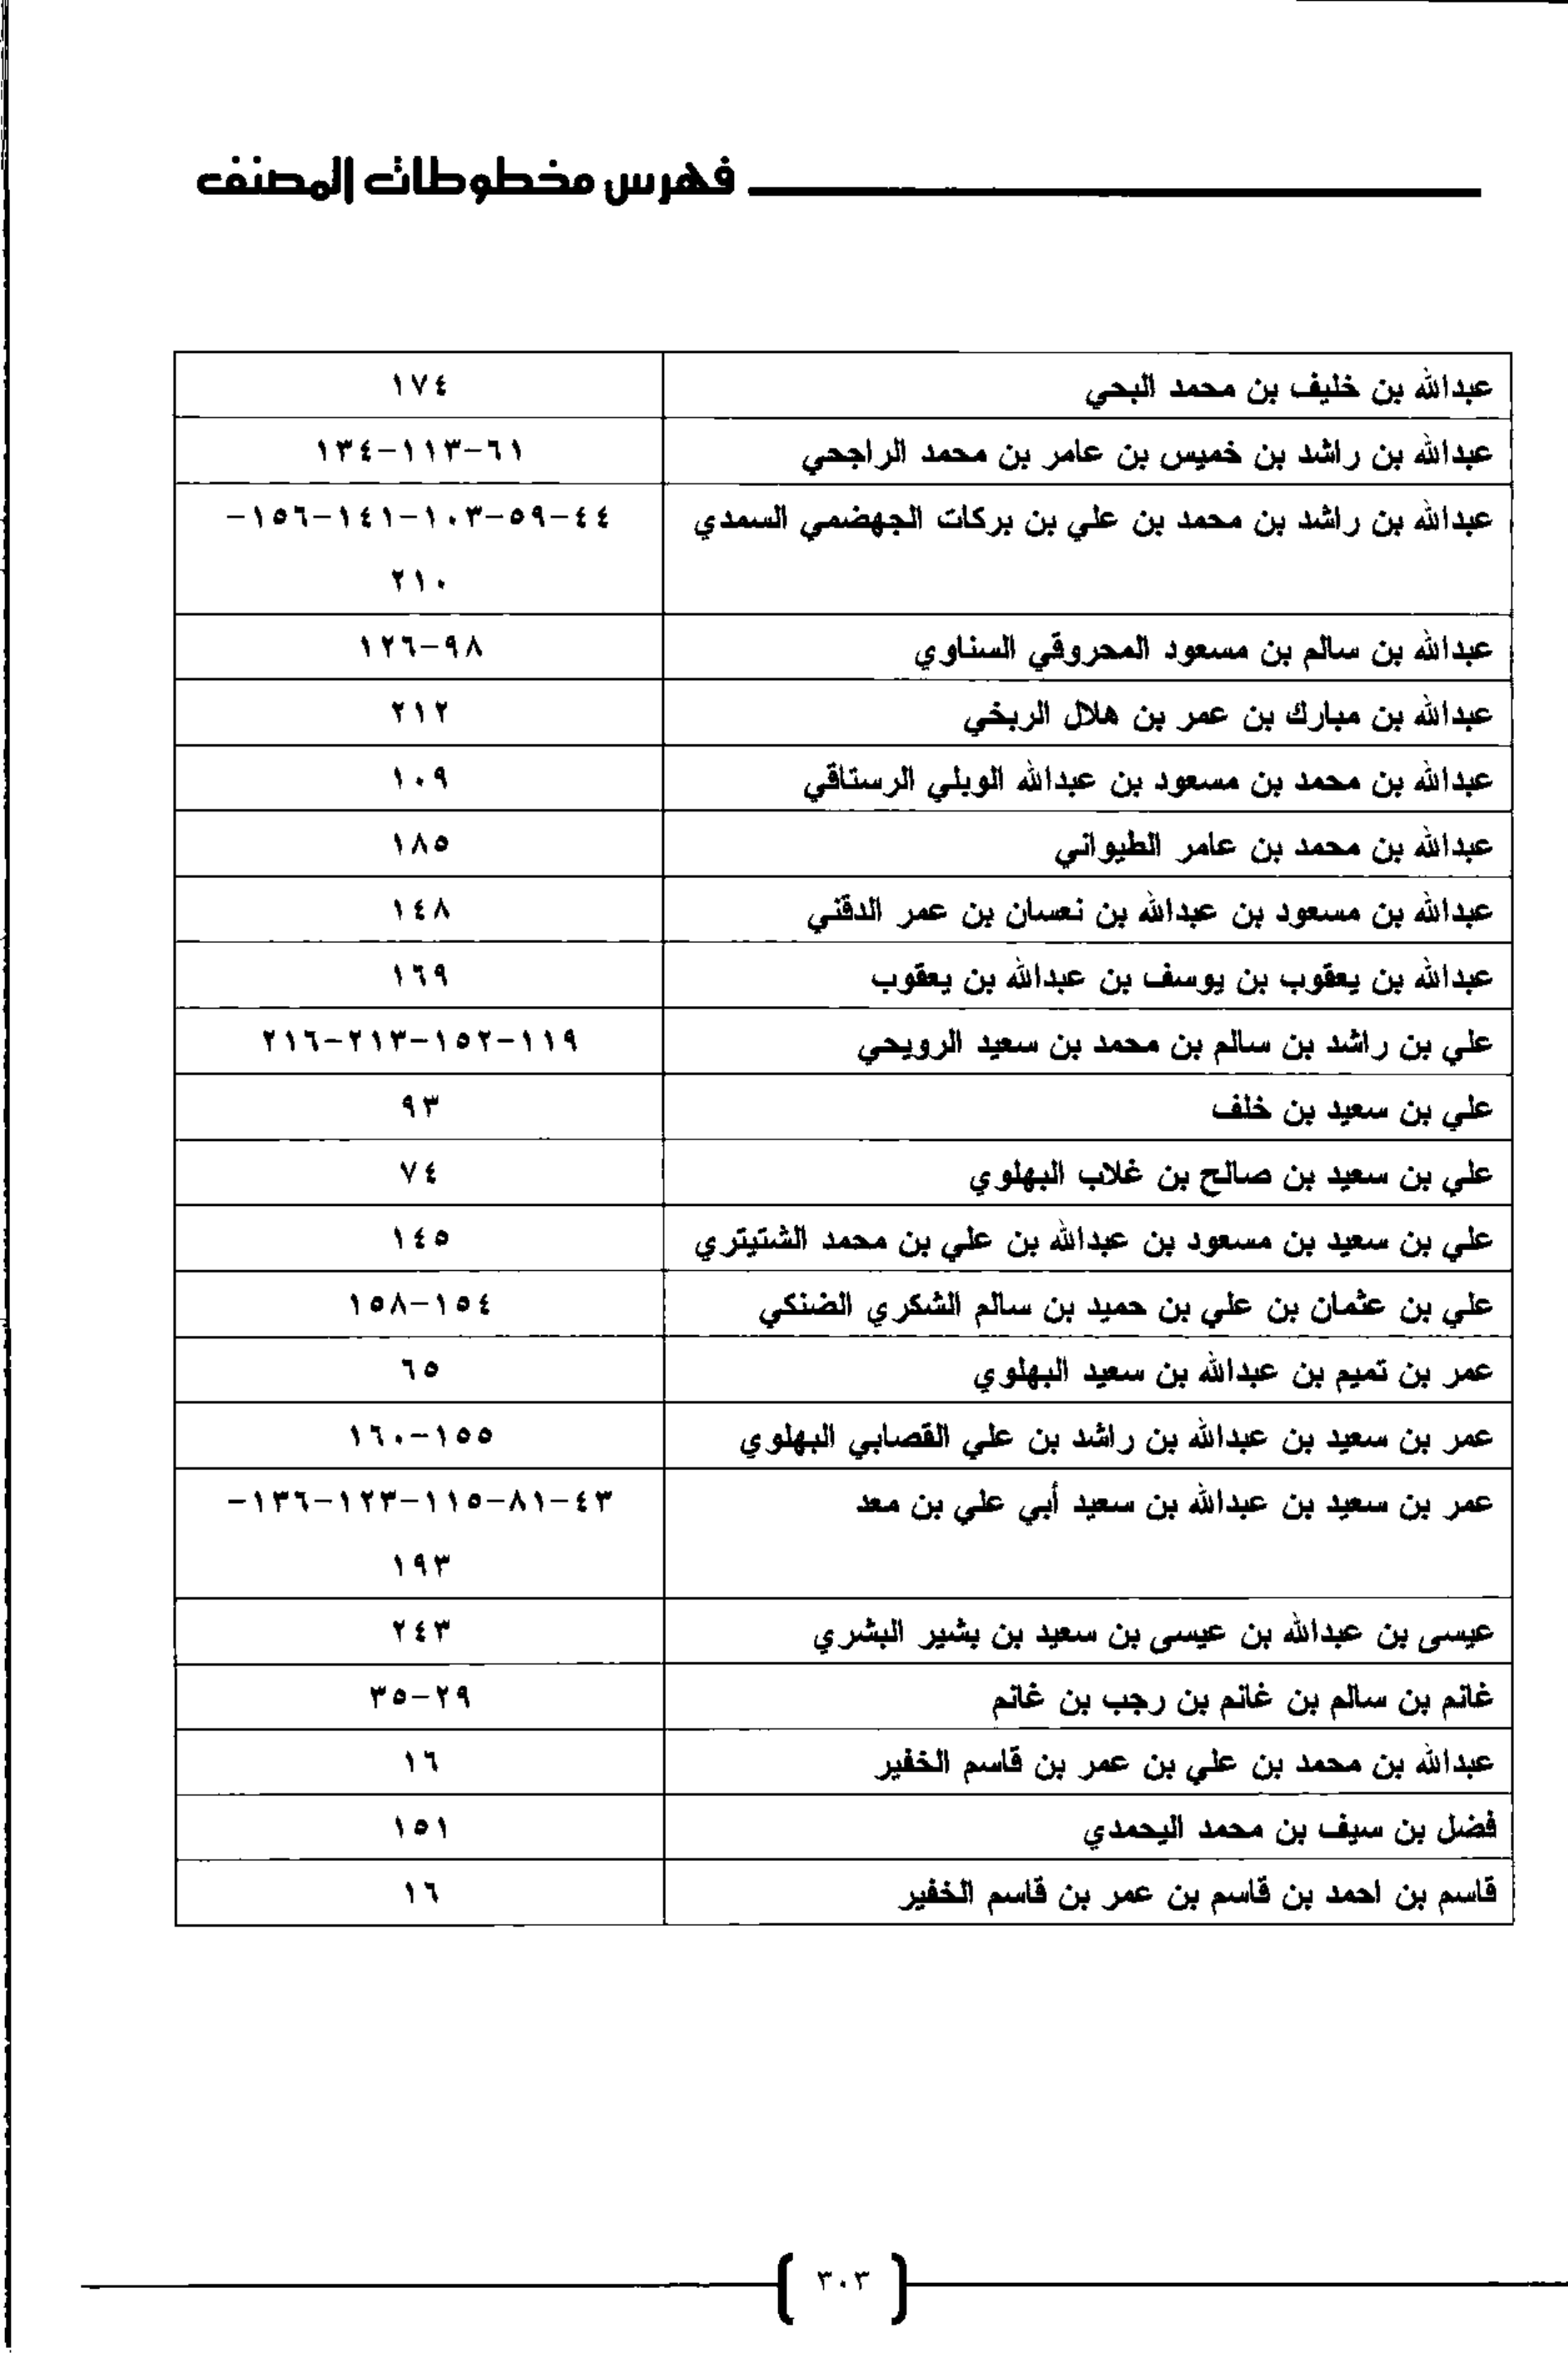 فهرس مخطوطات المصنف
عبدالله بن خليف بن محمد البحي ١٧٤
عبدالله بن راشد بن خميس بن عامر بن محمد الراجحي ٦١-١١٣-١٣٤
عبدالله بن راشد بن محمد بن علي بن بركات الجهضمي السمدي ٤٤-٥٩-١٠٣-١٤١-١٥٦-
٢١٠
عبدالله بن سالم بن مسعود المحروقي السناوي ٩٨-١٢٦
عبدالله بن مبارك بن عمر بن هلال الربخي ٢١٢
عبدالله بن محمد بن مسعود بن عبدالله الويلي الرستاقي ١٠٩
عبدالله بن محمد بن عامر الطيواني ١٨٥
عبدالله بن مسعود بن عبدالله بن نعسان بن عمر الدقني ١٤٨
عبدالله بن يعقوب بن يوسف بن عبدالله بن يعقوب ١٦٩
علي بن راشد بن سالم بن محمد بن سعيد الرويحي ١١٩-١٥٢-٢١٣-٢١٦
علي بن سعيد بن خلف ٩٣
علي بن سعيد بن صالح بن غلاب البهلوي ٧٤
علي بن سعيد بن مسعود بن عبدالله بن علي بن محمد الشتيتري ١٤٥
علي بن عثمان بن علي بن حميد بن سالم الشكري الضنكي ١٥٤-١٥٨
عمر بن تميم بن عبدالله بن سعيد البهلوي ٦٥
عمر بن سعيد بن عبدالله بن راشد بن علي القصابي البهلوي ١٥٥-١٦٠
عمر بن سعيد بن عبدالله بن سعيد أبي علي بن معد ٤٣-٨١-١١٥-١٢٣-١٣٦-
١٩٣
عيسى بن عبدالله بن عيسى بن سعيد بن بشير البشري ٢٤٣
غانم بن سالم بن غانم بن رجب بن غانم ٢٩-٣٥
عبدالله بن محمد بن علي بن عمر بن قاسم الخفير ١٦
فضل بن سيف بن محمد اليحمدي ١٥١
قاسم بن احمد بن قاسم بن عمر بن قاسم الخفير ١٦
٣٠٣